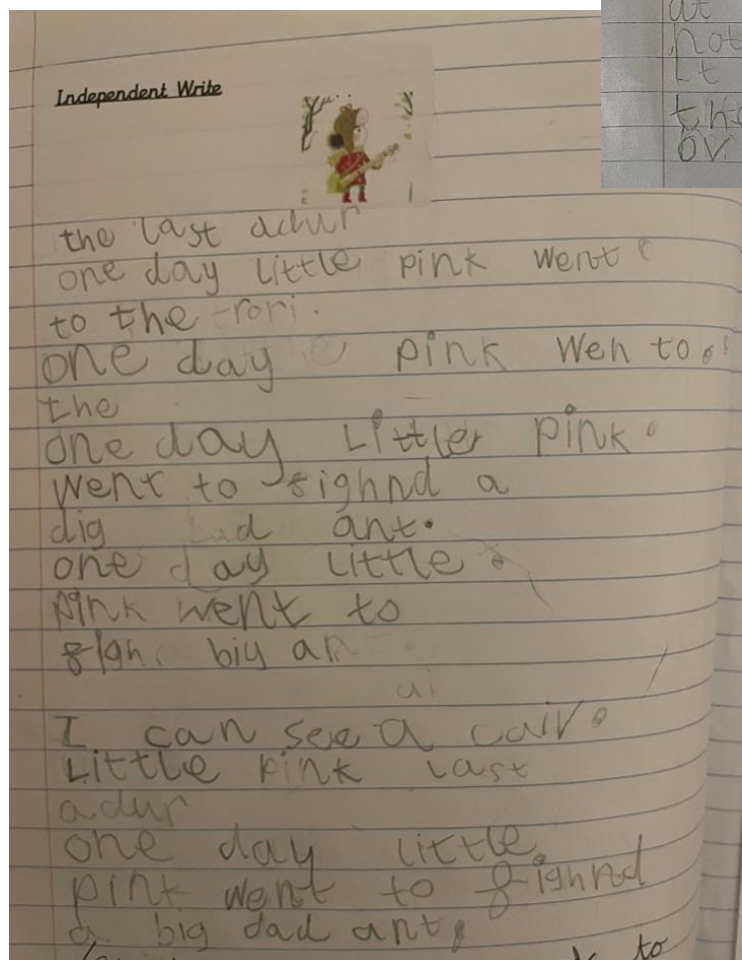 at
not
Lt
the
ov
Independent Write
the last adur
one day little pink went
to the rori.
one day pink Wen to
the
one day Little pink.
went to fighnd a
dig bad ant.
one day little.
pink went to
fighd big an
ai
I can see a caiv.
Little Pink last
adur
one day little
pink went to fighnd
a big dad ant,
to